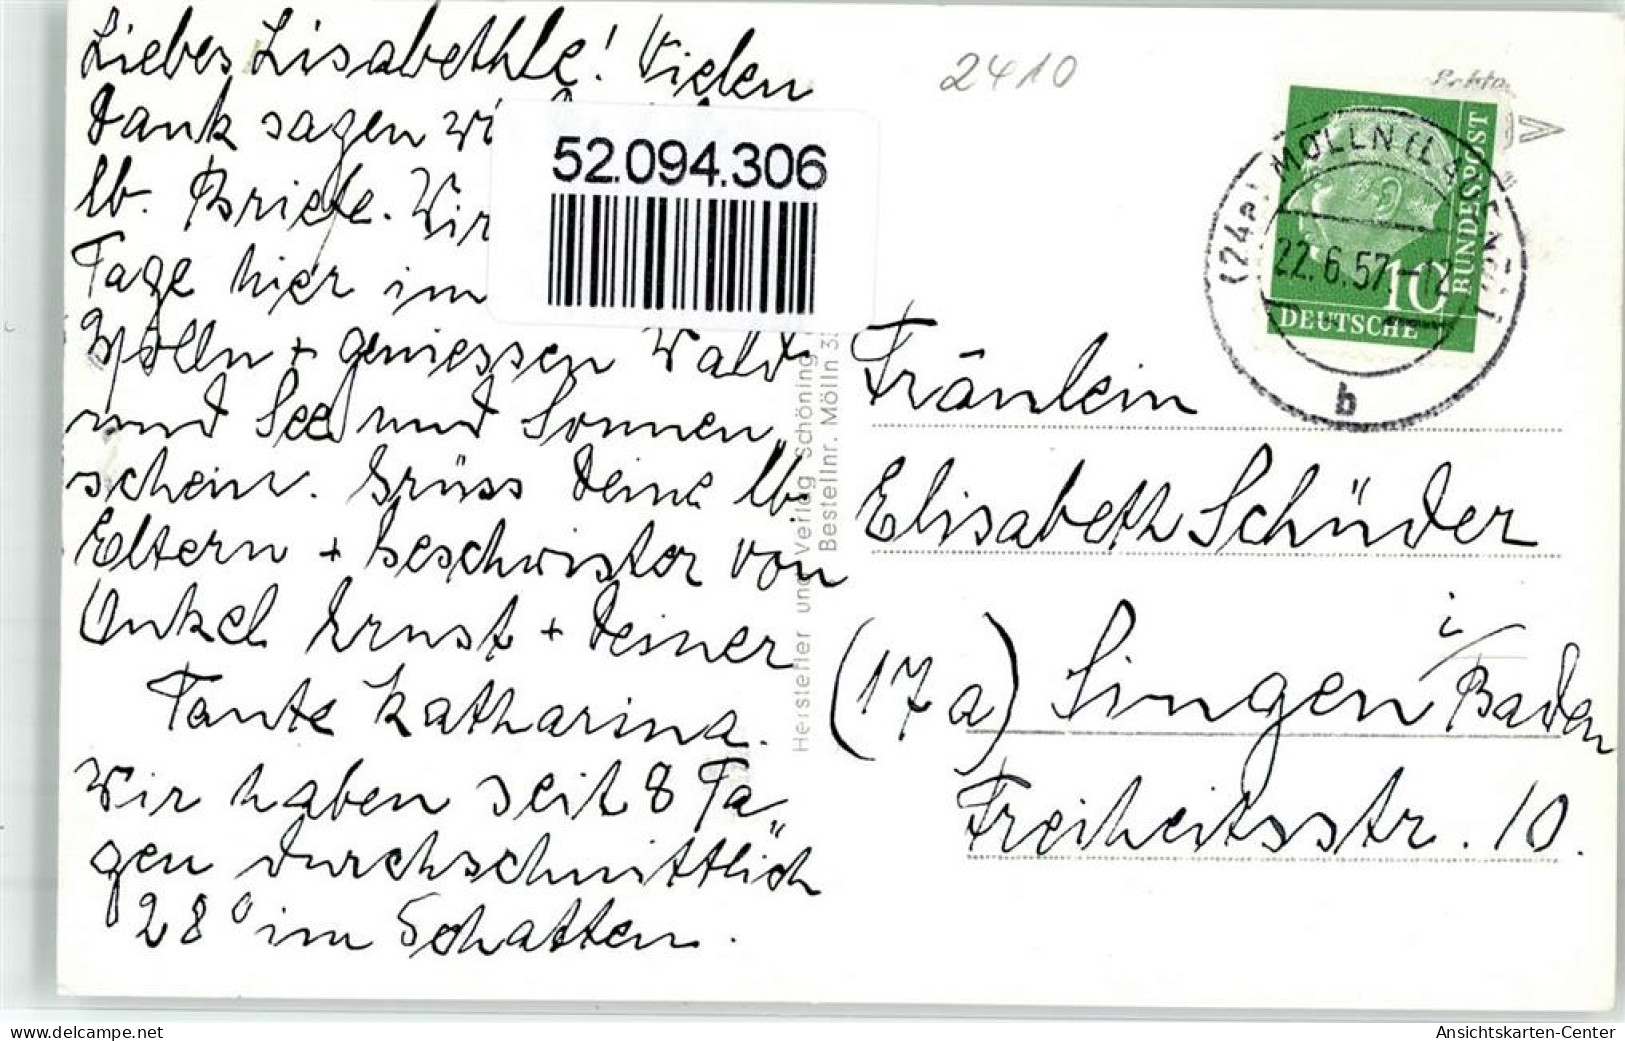 Liebes Lisabethle! Vielen
Dank sagen wi
lb. Briefe. Wir
Tage hier im
Mölln + geniessen Wald
und See und Sonnen„
schein. Grüss Deine lb.
Eltern + Geschwister von
Onkel Ernst + Deiner
Tante Katharina.
Wir haben seit 8 Ta„
gen durchschnittlich
28° im Schatten.
52.094.306
Hersteller und Verlag Schöning
Bestellnr. Mölln 3
2410
MÖLLN (LAUENBG)
(24a)
22.6.57.-12
b
10
DEUTSCHE
BUNDESPOST
Fräulein
Elisabeth Schüder
(17a) Singen i/Baden
Freiheitsstr. 10.
oldthing.com
Ansichtskarten-Center